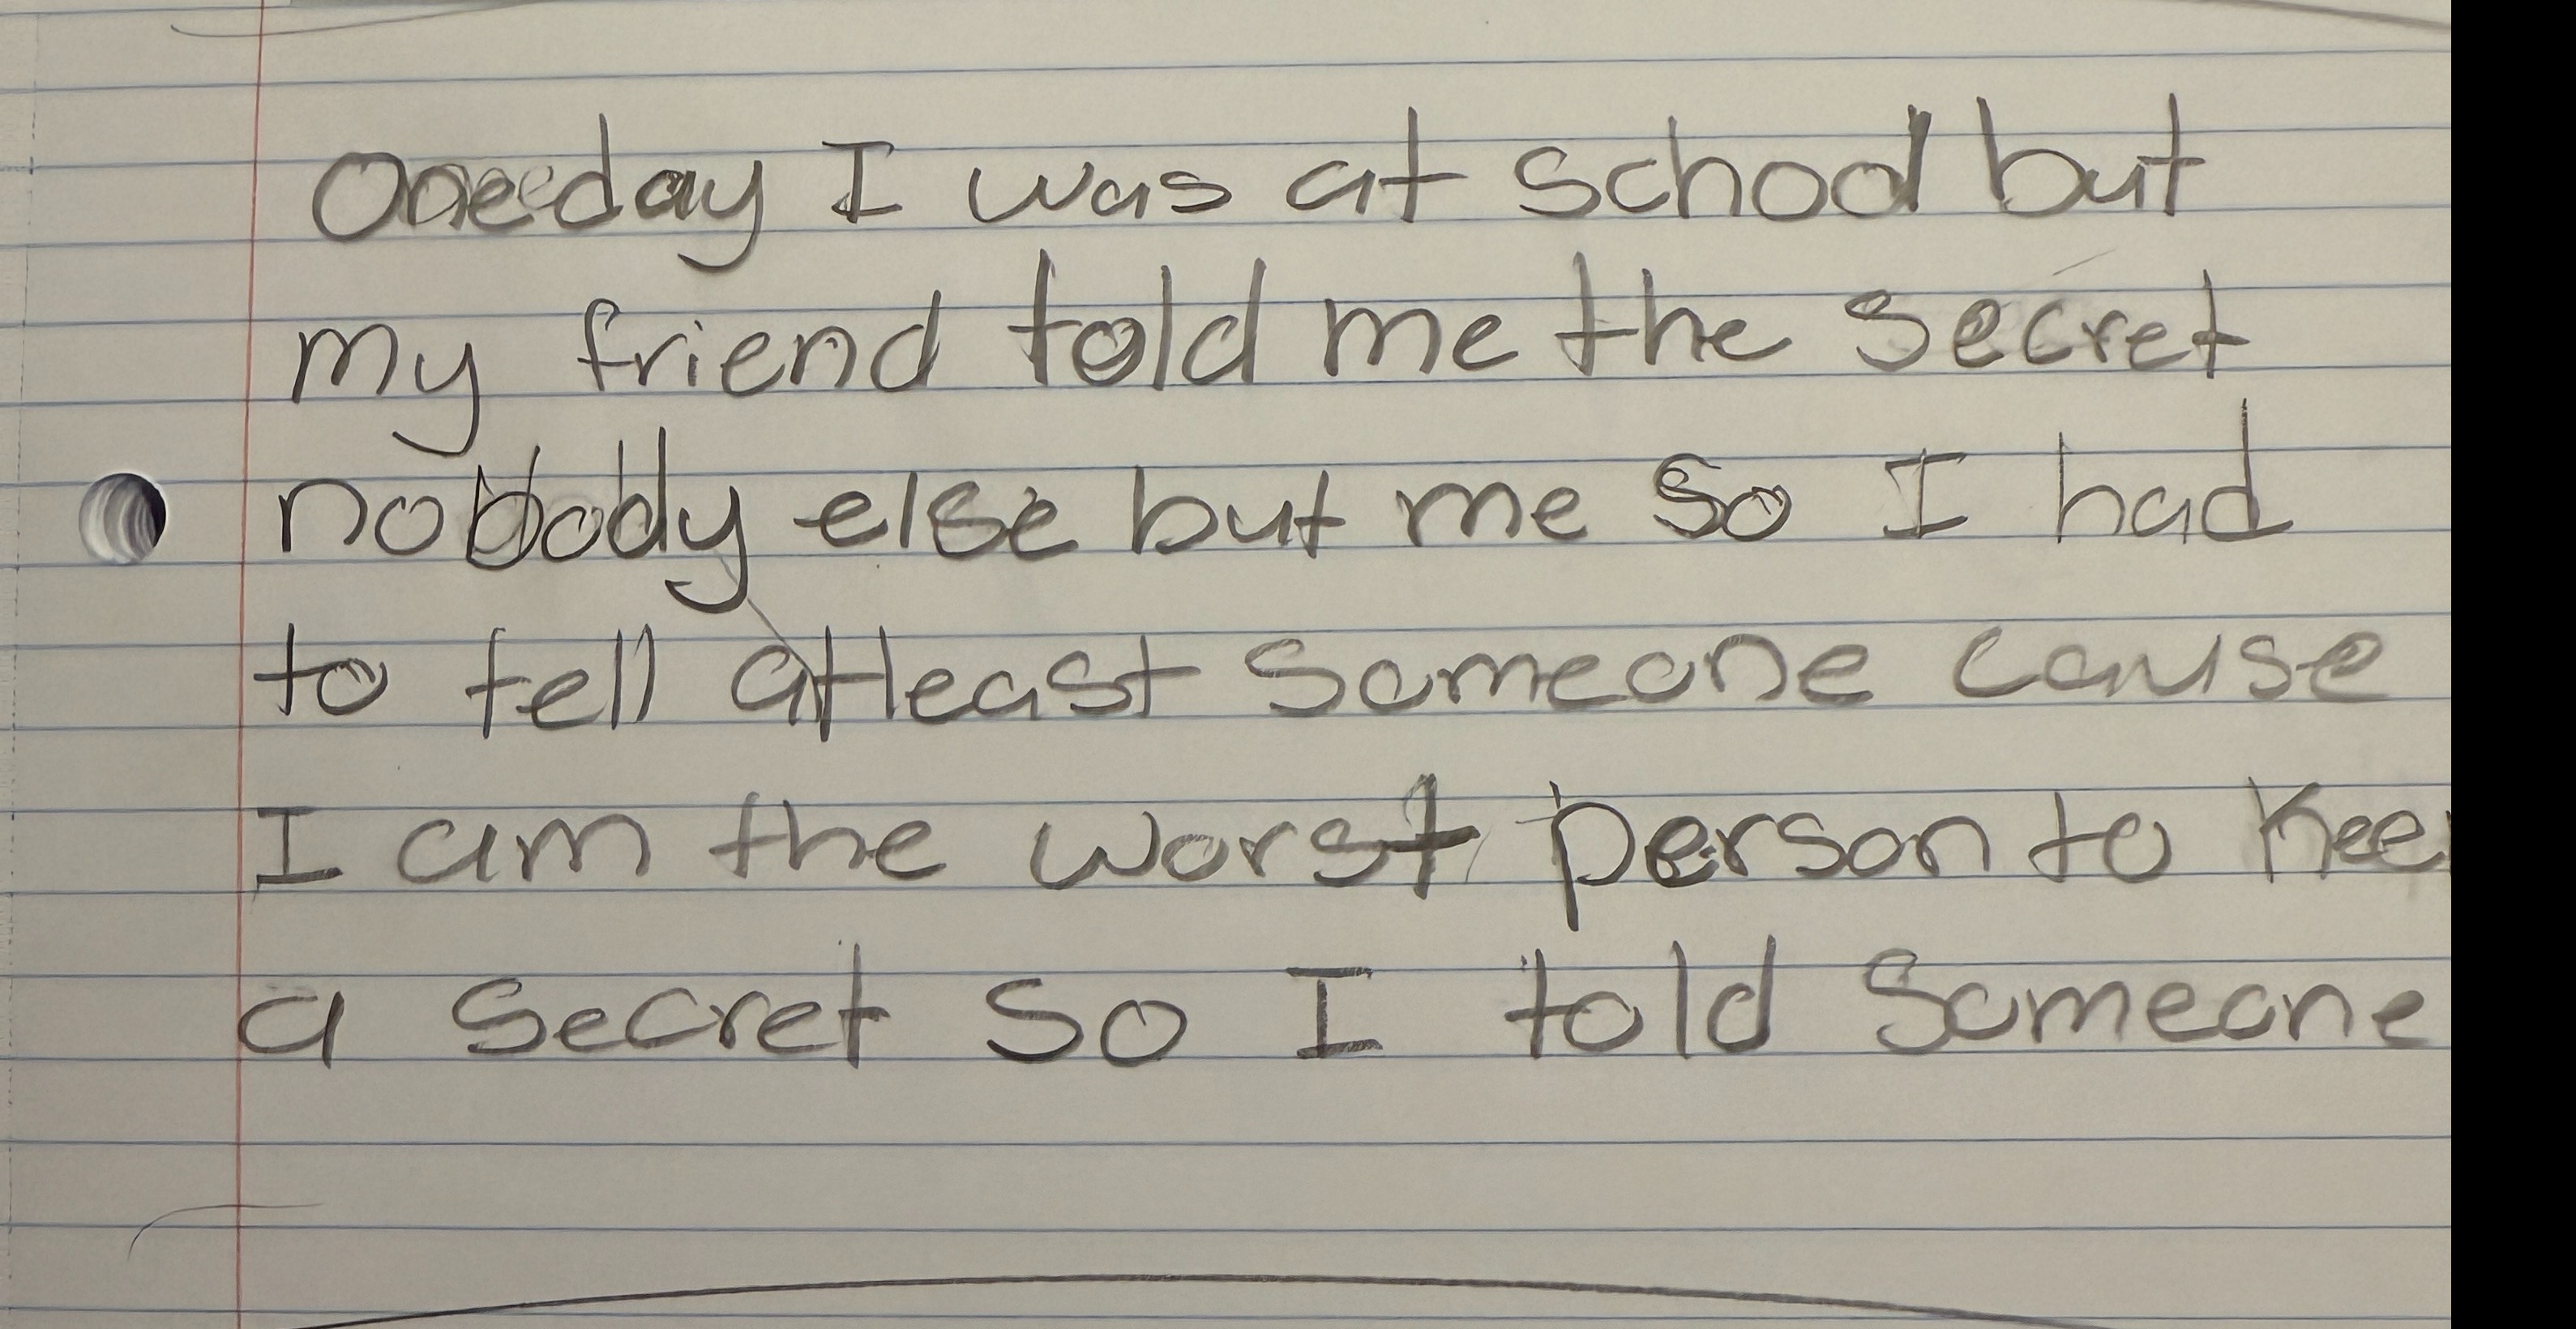 Oneday I was at school but
my friend told me the secret
nobody else but me so I had
to tell atleast someone cause
I am the worst person to Kee
a secret so I told someone